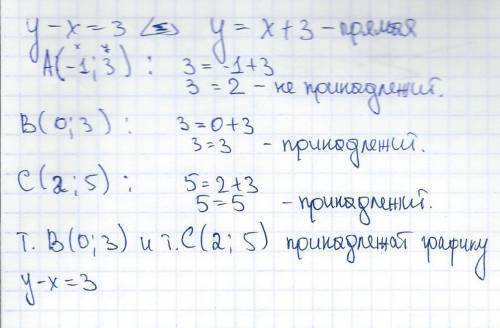 y-x=3 <=> y=x+3 - прямая
x y
A(-1;3): 3=-1+3
3=2 - не принадлежит.
B(0;3): 3=0+3
3=3 - принадлежит.
C(2;5): 5=2+3
5=5 - принадлежит.
т. B(0;3) и т. C(2;5) принадлежат графику
y-x=3